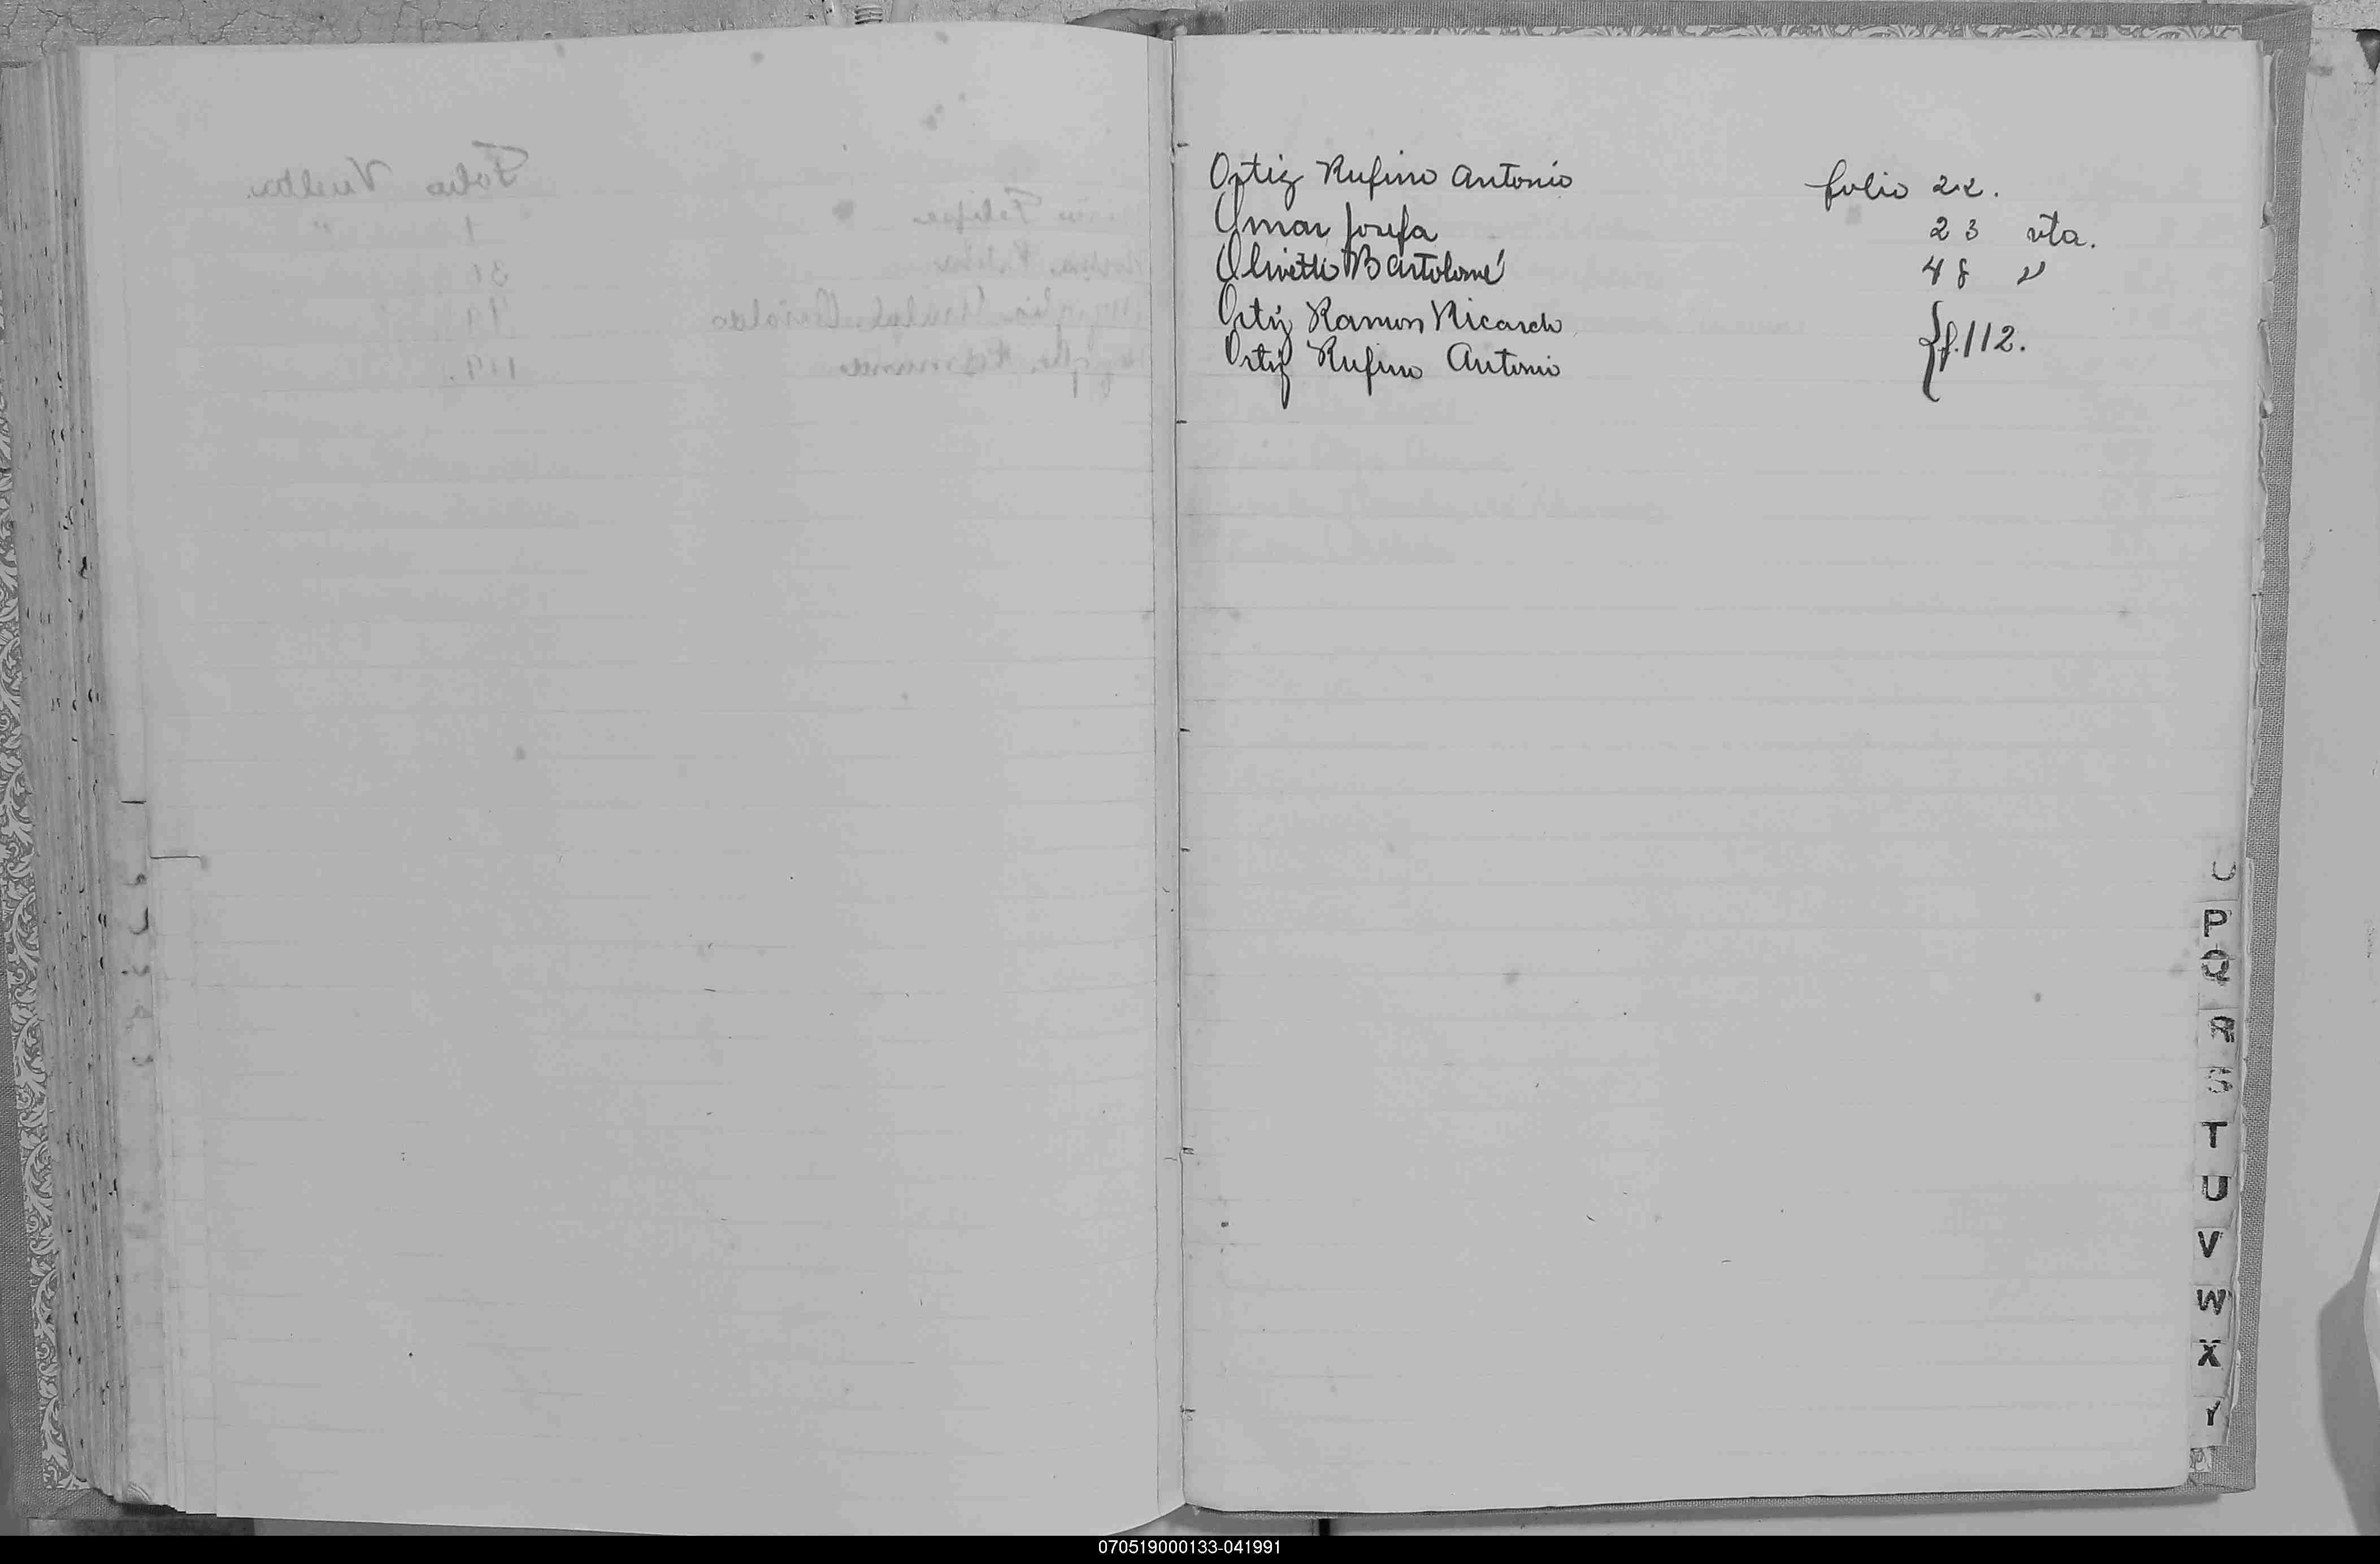 Ortiz Rufino Antonio folio 22.
Omar Josefa 23 vta.
Olivetti Bartolomé 48 "
Ortiz Ramon Ricardo
Ortiz Rufino Antonio } f. 112.
P
Q
R
S
T
U
V
W
X
Y
070519000133-041991